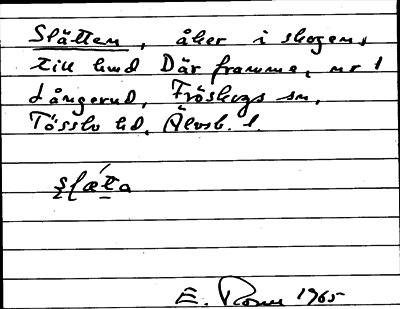 Slätten, åker i skogen,
till hmd Där framme, nr 1
Långerud, Fröskogs sn,
Tössbo hd, Älvsb. l.
slǽta
E. Rosell 1965